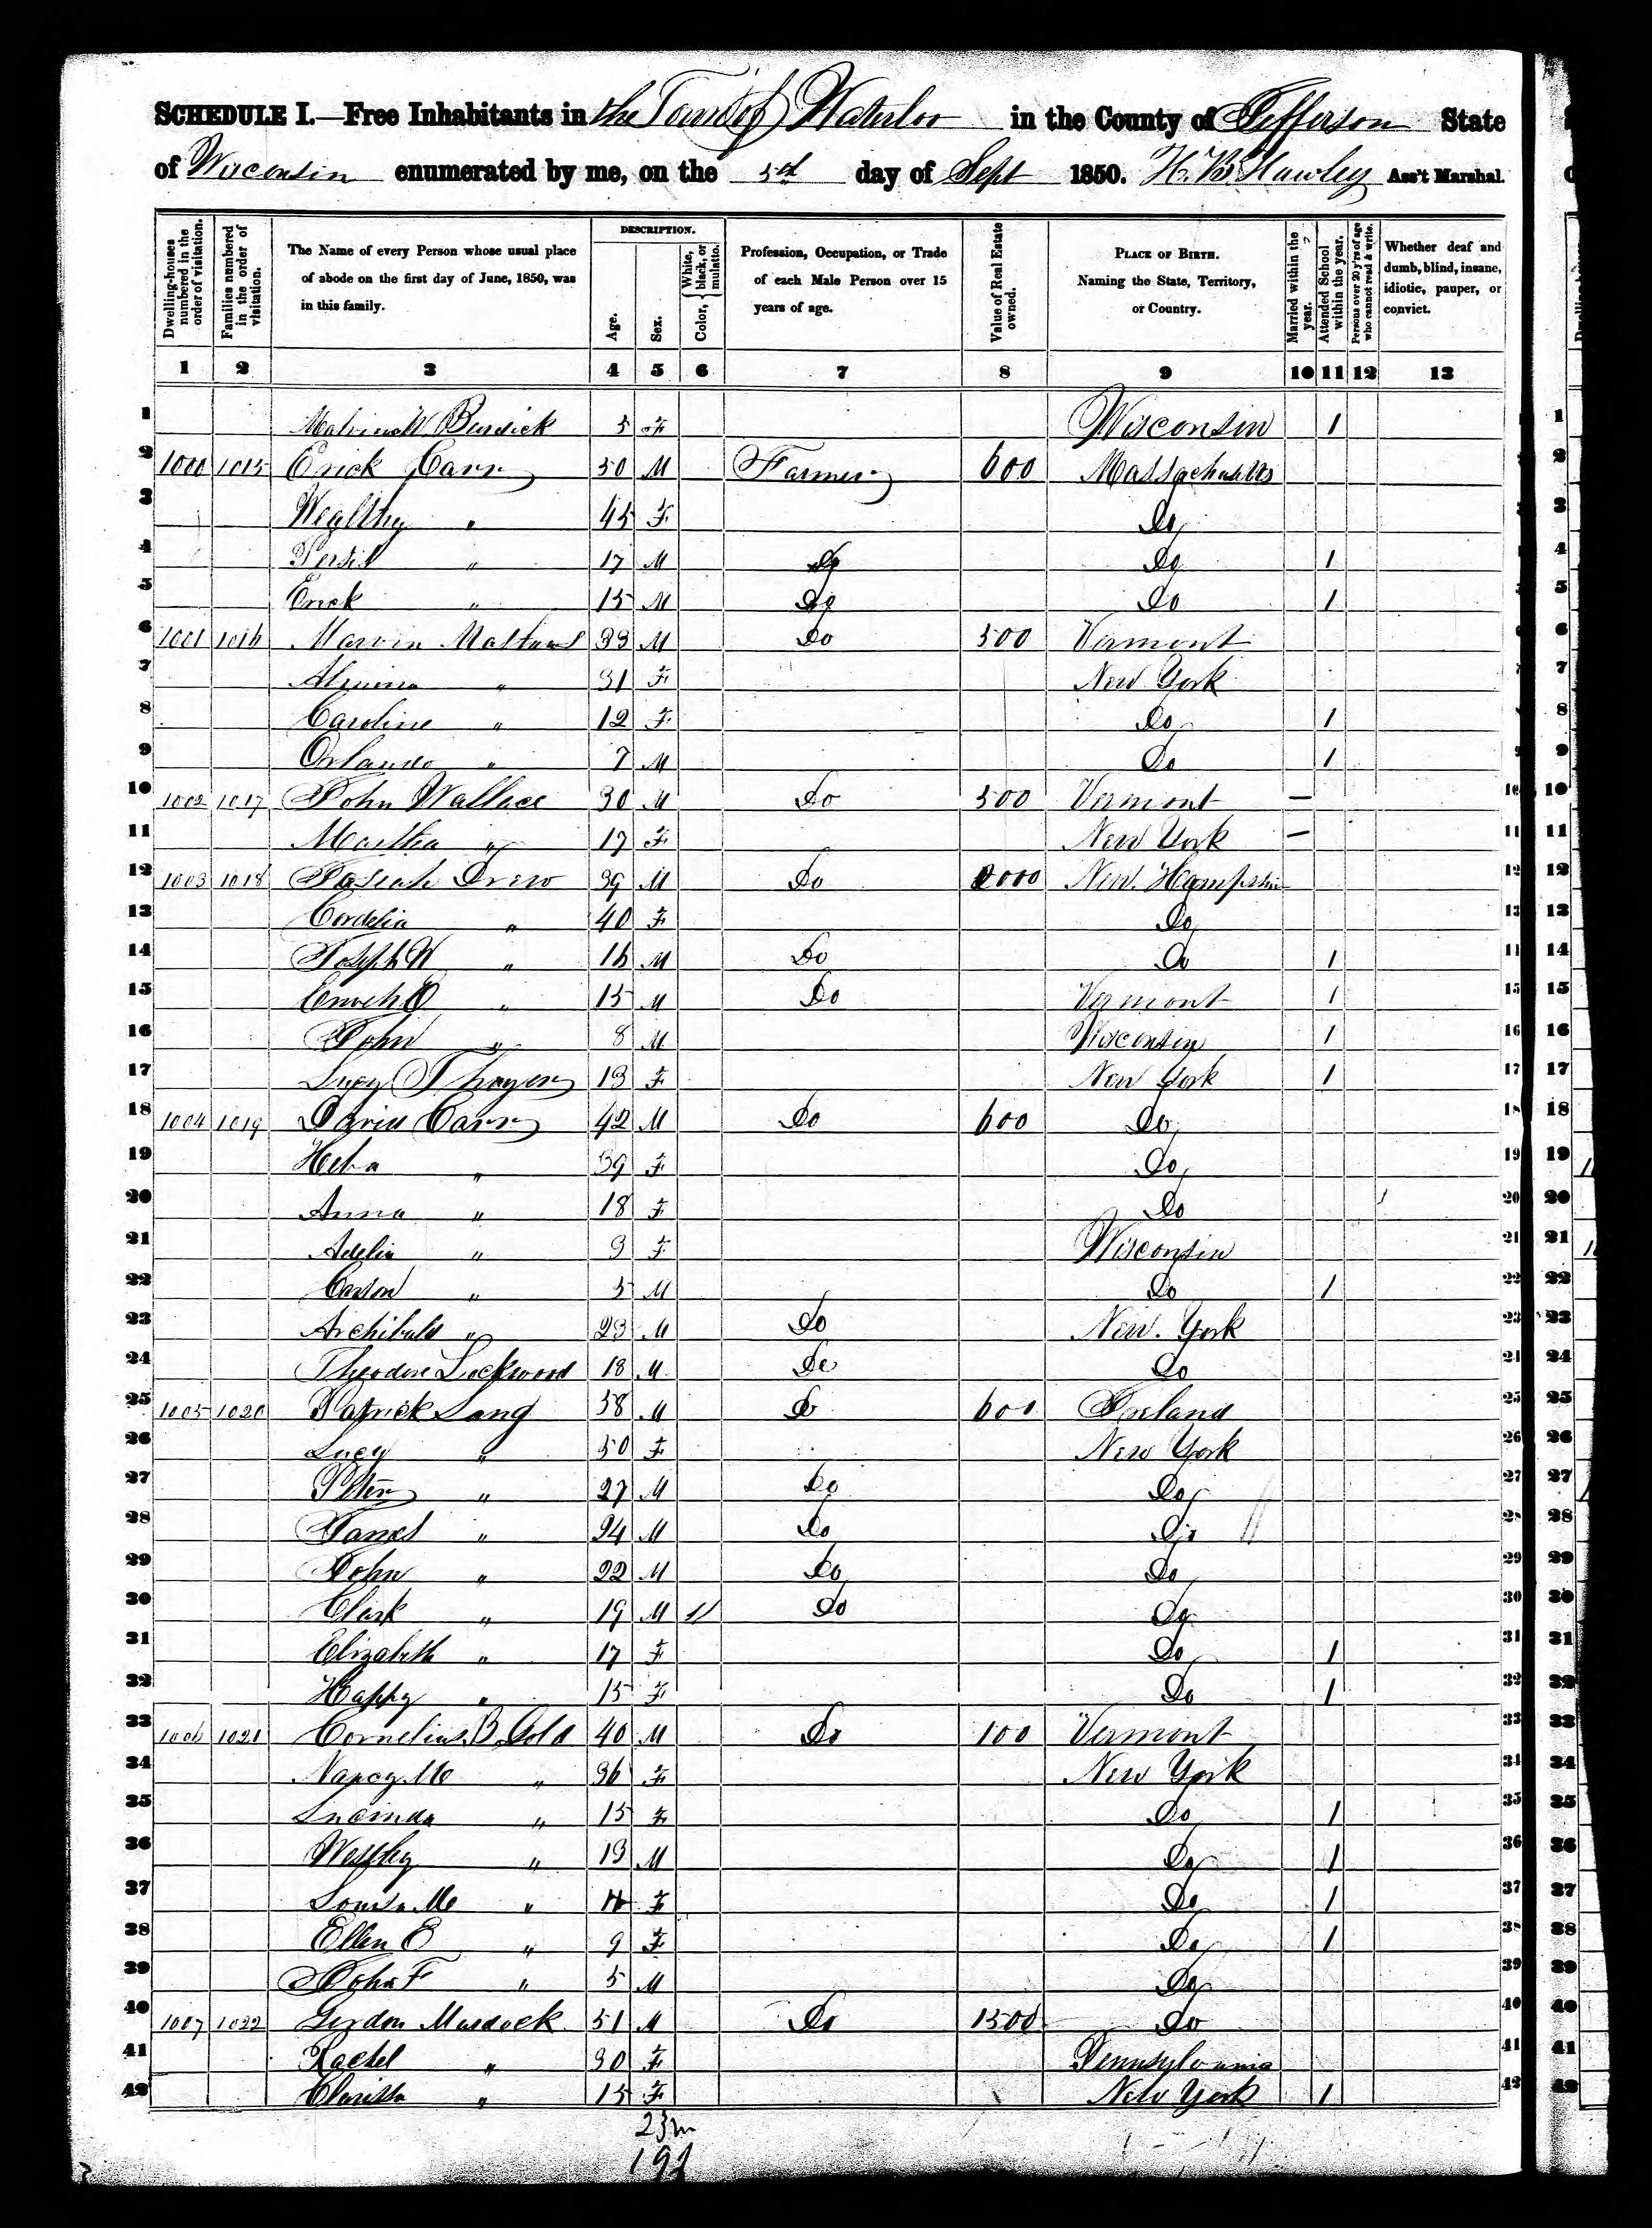 SCHEDULE I.—Free Inhabitants in the Town of Waterloo in the County of Jefferson State
of Wisconsin enumerated by me, on the 5th day of Sept 1850. H. B. Hawley Ass't Marshal.
Dwelling-houses numbered in the order of visitation.
Families numbered in the order of visitation.
The Name of every Person whose usual place of abode on the first day of June, 1850, was in this family.
DESCRIPTION.
Age.
Sex.
Color, { White, black, or mulatto.
Profession, Occupation, or Trade of each Male Person over 15 years of age.
Value of Real Estate owned.
PLACE OF BIRTH. Naming the State, Territory, or Country.
Married within the year.
Attended School within the year.
Persons over 20 y'rs of age who cannot read & write.
Whether deaf and dumb, blind, insane, idiotic, pauper, or convict.
1 2 3 4 5 6 7 8 9 10 11 12 13
1 Burdick 5 F Wisconsin 1 1
2 1000 1015 Erick Carr 50 M Farmer 600 Massachusetts 2
3 Wealthy " 45 F Do 3
4 " 17 M Do Do 1 4
5 Erick " 15 M Do Do 1 5
6 1001 1016 Marvin 33 M Do 500 Vermont 6
7 " 31 F New York 7
8 Caroline " 12 F Do 1 8
9 Orlando " 7 M Do 1 9
10 1002 1017 John Wallace 30 M Do 500 Vermont — 10 10
11 Martha " 17 F New York — 11 11
12 1003 1018 Josiah Drew 39 M Do 2000 New. Hampshire 12 12
13 Cordelia " 40 F Do 13 13
14 Joseph W " 16 M Do Do 1 14 14
15 Enoch O " 15 M Do Vermont 1 15 15
16 John " 8 M Wisconsin 1 16 16
17 Lucy Thayer 13 F New York 1 17 17
18 1004 1019 David Carr 42 M Do 600 Do 18 18
19 " 39 F Do 19 19
20 Anna " 18 F Do 20 20
21 Adelia " 9 F Wisconsin 21 21
22 " 5 M Do 1 22 22
23 Archibald " 23 M Do New. York 23 23
24 Theodore Lockwood 18 M Do Do 24 24
25 1005 1020 Patrick Lang 58 M Do 600 Ireland 25 25
26 Lucy " 50 F New York 26 26
27 Peter " 27 M Do Do 27 27
28 James " 24 M Do Do 28 28
29 John " 22 M Do Do 29 29
30 Clark " 19 M Do Do 30 30
31 Elizabeth " 17 F Do 1 31 31
32 Happy " 15 F Do 1 32 32
33 1006 1021 Cornelius B Gold 40 M Do 100 Vermont 33 33
34 Nancy M " 36 F New York 34 34
35 Lucinda " 15 F Do 1 35 35
36 Westley " 13 M Do 1 36 36
37 Louisa M " 11 F Do 1 37 37
38 Ellen E " 9 F Do 1 38 38
39 John F " 5 M Do 39 39
40 1007 1022 Murdock 51 M Do 1500 Do 40 40
41 Rachel " 30 F Pennsylvania 41 41
42 Clarissa " 15 F New York 1 42 42
23 m